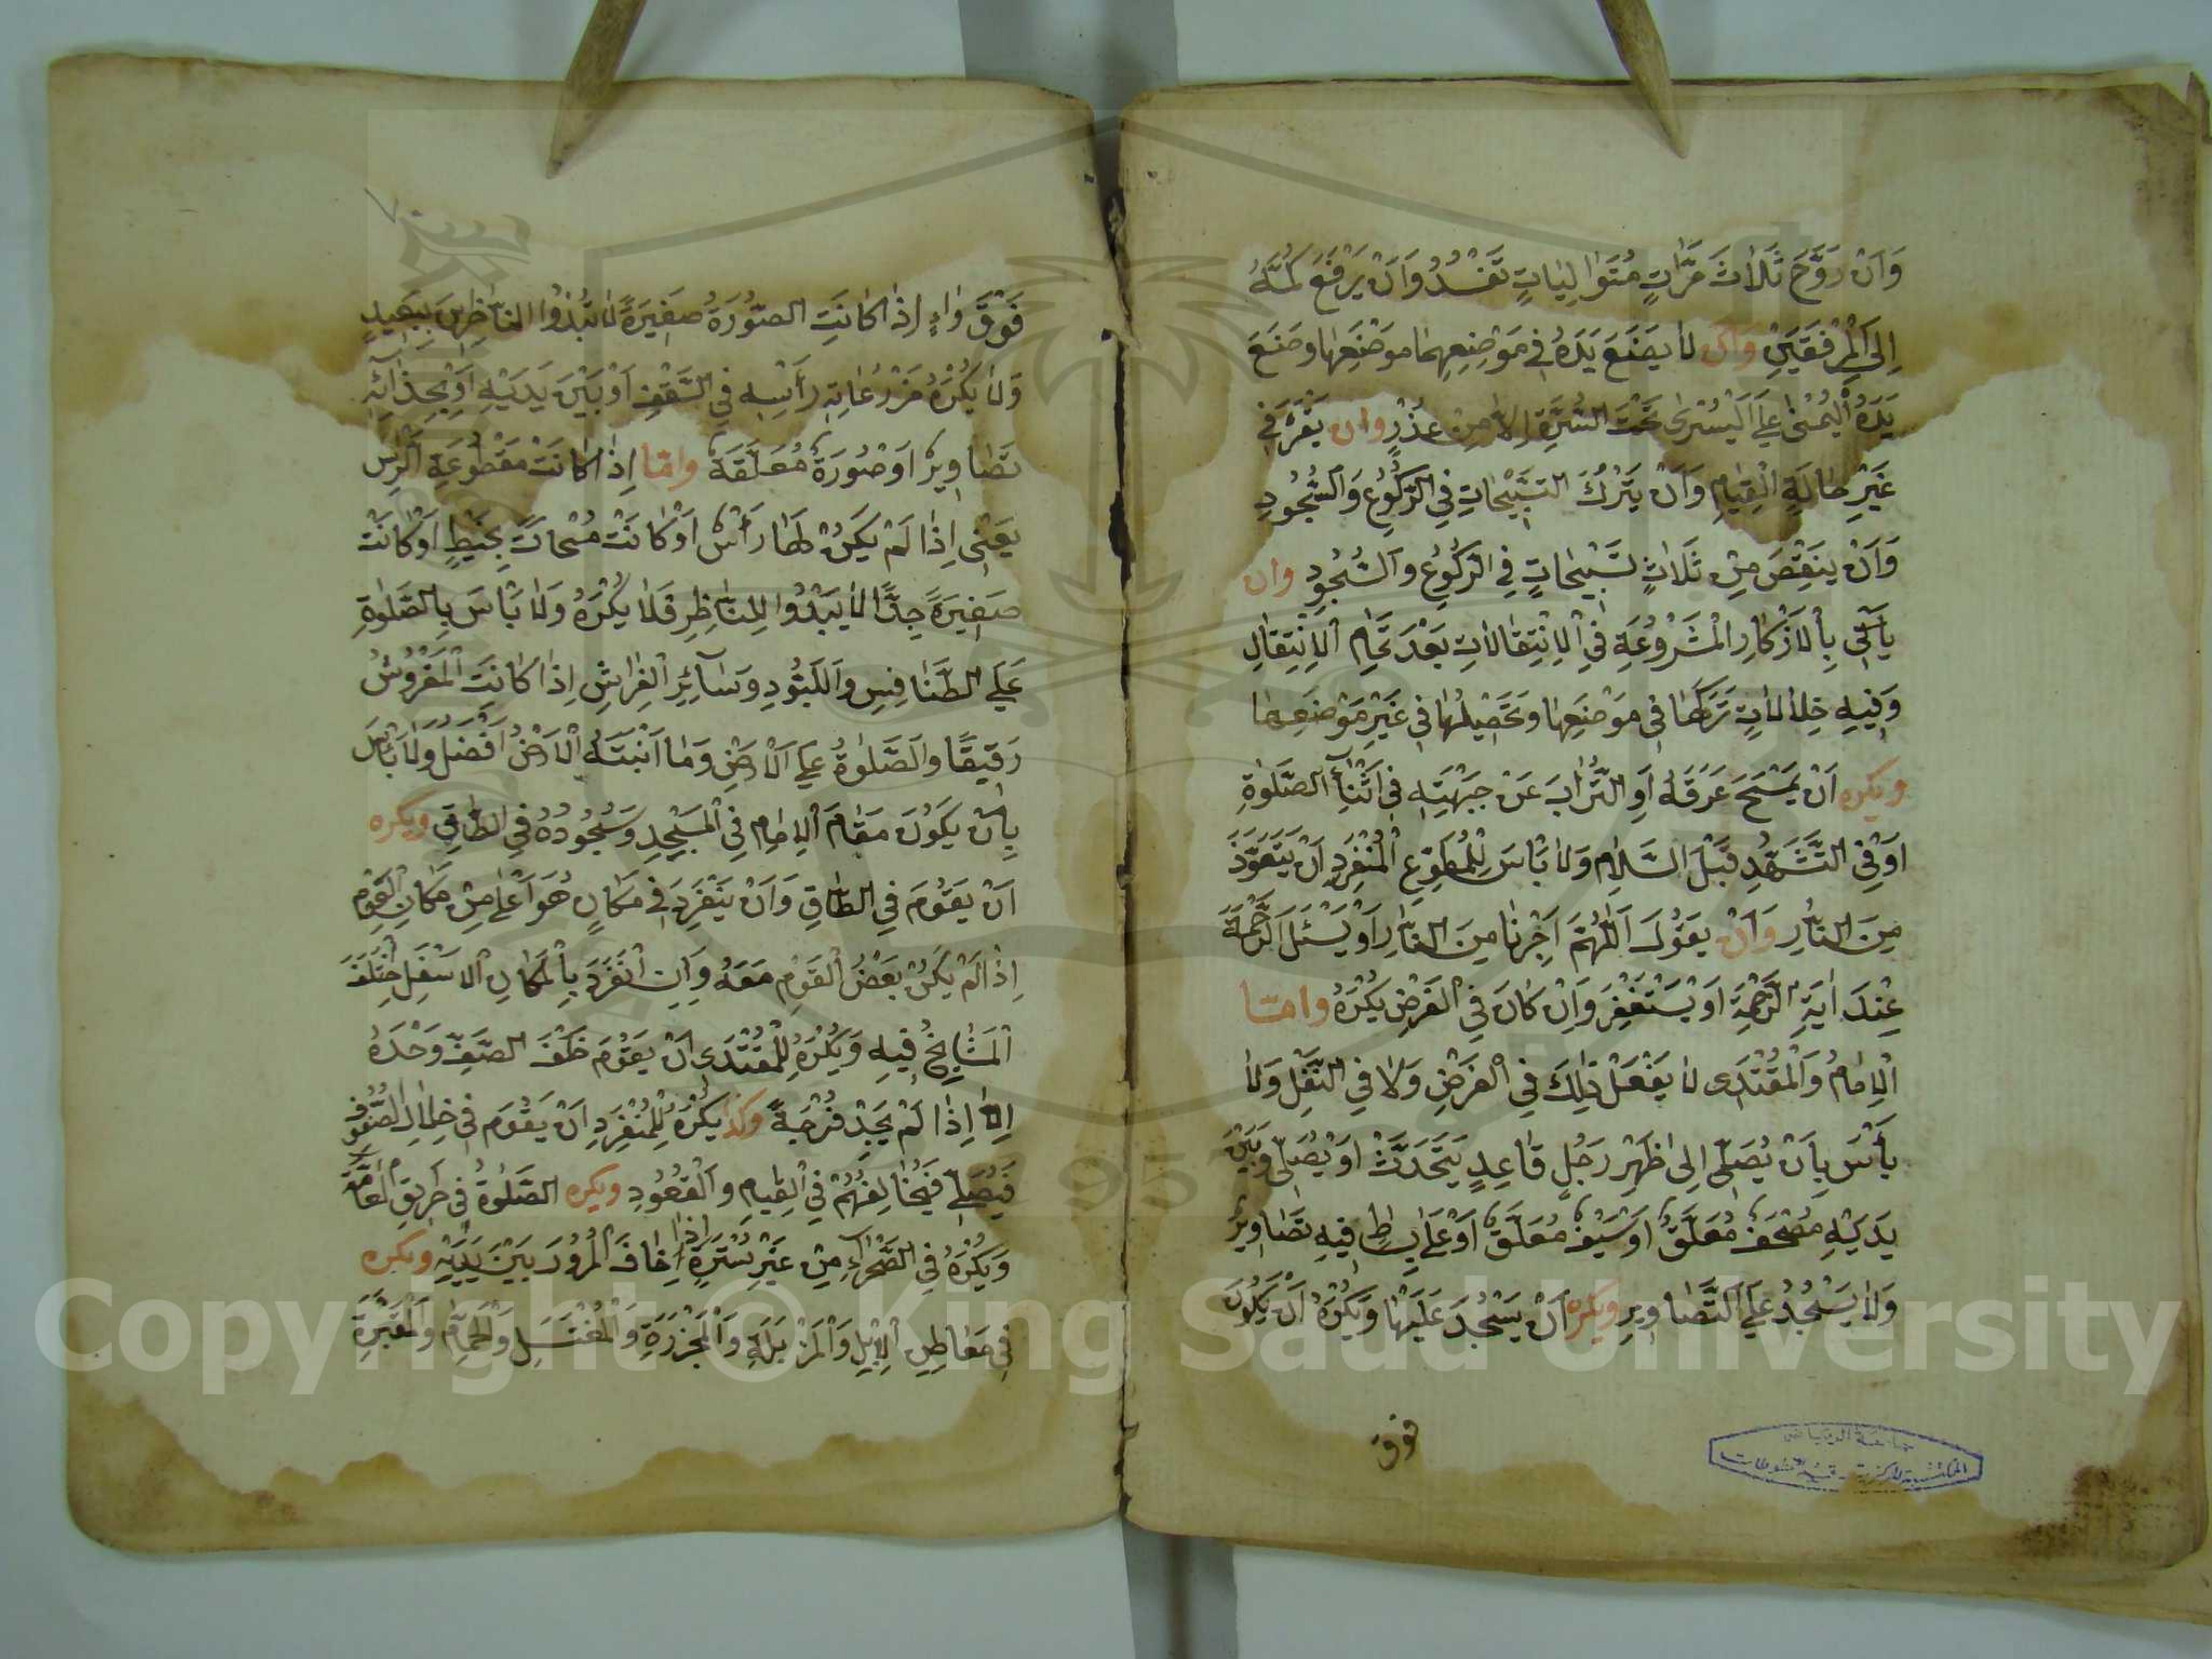 وَاَنْ رَوَّحَ ثَلَاثَ مَرَّاتٍ مُتَوَالِيَاتٍ تَفْسُدُ وَاَنْ يَرْفَعَ كُمَّهُ
اِلَى الْمِرْفَقَيْنِ وَاَنْ لَا يَضَعَ يَدَهُ فِي مَوْضِعِهِمَا مَوْضِعَهَا وَضَعَ
يَدَهُ الْيُمْنٰى عَلَى الْيُسْرٰى تَحْتَ السُّرَّةِ اِلَّا مِنْ عُذْرٍ وان يَقْرَءَ فِي
غَيْرِ حَالَةِ الْقِيَامِ وَاَنْ يَتْرُكَ التَّسْبِيْحَاتِ فِي الرُّكُوْعِ وَالسُّجُودِ
وَاَنْ يَنْقُصَ مِنْ ثَلَاثِ تَسْبِيْحَاتٍ فِي الرُّكُوعِ وَالسُّجُودِ وان
يَأْتِيَ بِالْاَذْكَارِ الْمَشْرُوْعَةِ فِي الْاِنْتِقَالَاتِ بَعْدَ تَمَامِ الْاِنْتِقَالِ
وَفِيهِ خِلَالَانِ تَرْكُهَا فِي مَوْضِعِهَا وَتَحْصِيْلُهَا فِي غَيْرِ مَوْضِعِهَا
ويكره اَنْ يَمْسَحَ عَرَقَهُ اَوِ التُّرَابَ عَنْ جَبْهَتِهِ فِي اَثْنَآءِ الصَّلٰوةِ
اَوْ فِي التَّشَهُّدِ قَبْلَ السَّلَامِ وَلَا بَاْسَ لِلْمُتَطَوِّعِ الْمُنْفَرِدِ اَنْ يَتَعَوَّذَ
مِنَ النَّارِ وَاَنْ يَقُوْلَ اَللّٰهُمَّ اَجِرْنَا مِنَ النَّارِ اَوْ يَسْئَلَ الرَّحْمَةَ
عِنْدَ اٰيَةِ الرَّحْمَةِ اَوْ يَسْتَغْفِرَ وَاِنْ كَانَ فِي الْفَرْضِ يُكْرَهُ وامّا
الْاِمَامُ وَالْمُقْتَدِى لَا يَفْعَلُ ذٰلِكَ فِي الْفَرْضِ وَلَا فِي النَّفْلِ وَلَا
بَأْسَ بِاَنْ يُصَلِّيَ اِلٰى ظَهْرِ رَجُلٍ قَاعِدٍ يَتَحَدَّثُ اَوْ يُصَلِّيَ وَبَيْنَ
يَدَيْهِ مُصْحَفٌ مُعَلَّقٌ اَوْ سَيْفٌ مُعَلَّقٌ اَوْ عَلٰى بِسَاطٍ فِيهِ تَصَاوِيْرُ
وَلَا يَسْجُدُ عَلَى التَّصَاوِيرِ ويكره اَنْ يَسْجُدَ عَلَيْهَا وَيُكْرَهُ اَنْ يَكُوْنَ
فوق
جامعة الرياض
المكتبة المركزية - قسم المخطوطات
فَوْقَ رَاْ اِذَا كَانَتِ الصُّوْرَةُ صَغِيْرَةً لَا تَبْدُوا النَّاظِرِينَ بِبَعِيدٍ
وَلَا يُكْرَهُ رَأْسِهِ فِي السَّقْفِ اَوْ بَيْنَ يَدَيْهِ اَوْ بِحِذَآئِهِ
تَصَاوِيرُ اَوْ صُوْرَةٌ مُعَلَّقَةٌ وامّا اِذَا كَانَتْ مَقْطُوعَةِ الرَّأْسِ
يَعْنِي اِذَا لَمْ يَكُنْ لَهَا رَأْسٌ اَوْ كَانَتْ مُمْحَاتٌ بِخَيْطٍ اَوْ كَانَتْ
صَغِيرَةً جِدًّا لَا يَبْدُوا لِلنَّاظِرِ فَلَا يُكْرَهُ وَلَا بَاْسَ بِالصَّلٰوةِ
عَلَى الطَّنَافِسِ وَاللُّبُوْدِ وَسَآئِرِ الْفِرَاشِ اِذَا كَانَتِ الْمَفْرُوشُ
رَقِيقًا وَالصَّلٰوةُ عَلَى الْاَرْضِ وَمَا اَنْبَتَتْهُ الْاَرْضُ اَفْضَلُ وَلَا بَاْسَ
بِاَنْ يَكُوْنَ مَقَامُ الْاِمَامِ فِي الْمَسْجِدِ وَسُجُودُهُ فِي الطَّاقِ ويكره
اَنْ يَقُوْمَ فِي الطَّاقِ وَاَنْ يَنْفَرِدَ فِي مَكَانٍ هُوَ اَعْلٰى مِنْ مَكَانِ الْقَوْمِ
اِذَا لَمْ يَكُنْ بَعْضُ الْقَوْمِ مَعَهُ وَاِنِ انْفَرَدَ بِالْمَكَانِ الْاَسْفَلِ اخْتَلَفَ
الْمَشَايِخُ فِيهِ وَيُكْرَهُ لِلْمُقْتَدِي اَنْ يَقُوْمَ خَلْفَ الصَّفِّ وَحْدَهُ
اِلَّا اِذَا لَمْ يَجِدْ فُرْجَةً وكذا يُكْرَهُ لِلْمُنْفَرِدِ اَنْ يَقُوْمَ فِي خِلَالِ الصُّفُوفِ
فَيُصَلِّيَ فَيُخَالِفَهُمْ فِي الْقِيَامِ وَالْقُعُوْدِ ويكره الصَّلٰوةُ فِي طَرِيقِ الْعَامَّةِ
وَيُكْرَهُ فِي الصَّحْرَاءِ مِنْ غَيْرِ سُتْرَةٍ اِذَا خَافَ الْمُرُوْرَ بَيْنَ يَدَيْهِ ويكره
فِي مَعَاطِنِ الْاِبِلِ وَالْمَزْبَلَةِ وَالْمَجْزَرَةِ وَالْمُغْتَسَلِ وَالْحَمَّامِ وَالْمَقْبَرَةِ
Copyright © King Saud University
1957